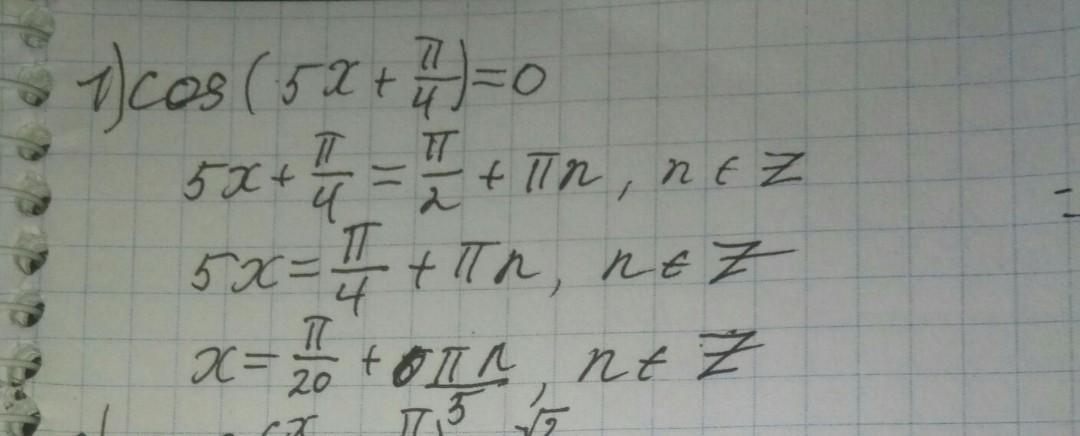 1) cos(5x + π/4) = 0
5x + π/4 = π/2 + πn, n ∈ Z
5x = π/4 + πn, n ∈ Z
x = π/20 + πn/5, n ∈ Z